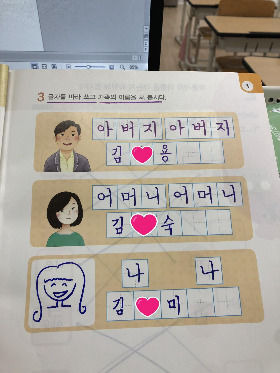 3 글자를 따라 쓰고 가족의 이름을 써 봅시다.
아버지 아버지
김 용
어머니 어머니
김 숙
나 나
김 미